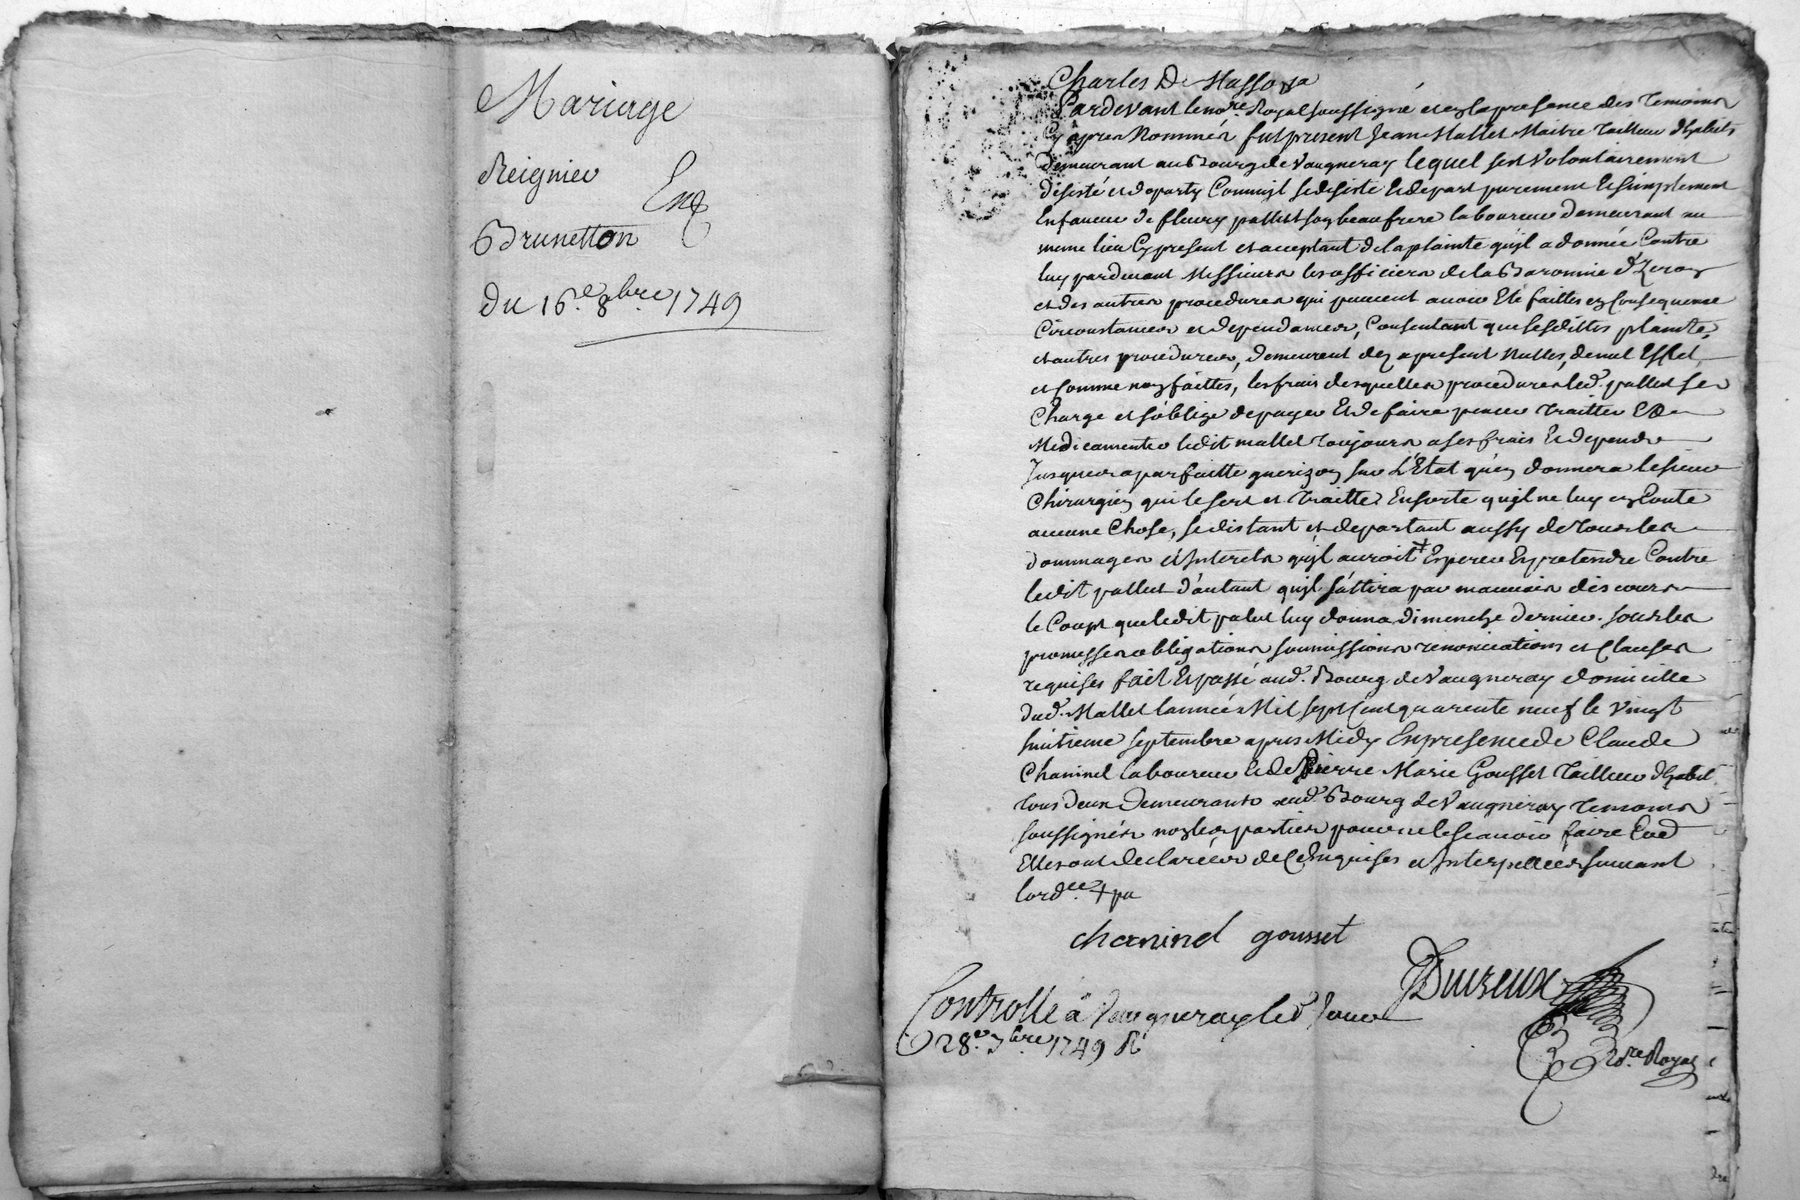 Mariage
Reignier
Exp
Brunetton
Du 16.e 8.bre 1749
Charles De Masso
Pardevant le no.re Royal soussigné et en la presance des temoins
Cy apres Nommés fut present Jean Mallet Maitre tailleur d'habits
demeurant au Bourg de Vaugneray lequel s'est volontairement
désisté et dépar ty Comm'il se désiste et départ purement et simplement
En faveur de fleury pallet son beaufrere laboureur demeurant au
meme lieu Cy present et acceptant de la plainte qu'il a donnée Contre
luy pardevant Messieurs les officiers de la Baronnie d'Yzeron
et des autres procedures qui peuvent avoir Eté faittes en Consequence
Circonstances et dependances, Consentant que lesdittes plainte,
et autres procedures, demeurent dez apresent Nulles, de nul Effet,
et Comme non faittes, les frais desquelles procedures led. pallet se
Charge et s'oblige de payer Et de faire penser traitter Et
Medicamenter ledit mallet toujours a ses frais Et depends
Jusques a parfaitte guerizon sur L'Etat qu'en donnera le sieur
Chirurgien qui le sert et traitte Ensorte qu'il ne luy en Coute
aucune Chose, se distant et departant aussy de tous les
dommages et Interets qu'il auroit + Esperer En pretendre Contre
ledit pallet d'autant qu'il s'attira par mauvais discours
le Coup que ledit palet luy donna dimenche dernier. sous les
promesses obligations soumissions renonciations et Clauses
requises fait Et passé aud. Bourg de Vaugneray domicille
dud. Mallet l'année Mil sept Cent quarente neuf le vingt
huitieme septembre apres Midy En presence de Claude
Chaninel laboureur Et de Pierre Marie Gousset tailleur d'habit
tous deux demeurants aud. Bourg de Vaugneray temoins
soussignés non les parties pour ne le scavoir faire
Elles ont declarées de Ce Enquises et Interpellées suivant
l'ord.ce + pu
chaninel gousset
Duizeux
no.re Royal
Controllé à Vaugneray led. Jour
28.e 7.bre 1749 R